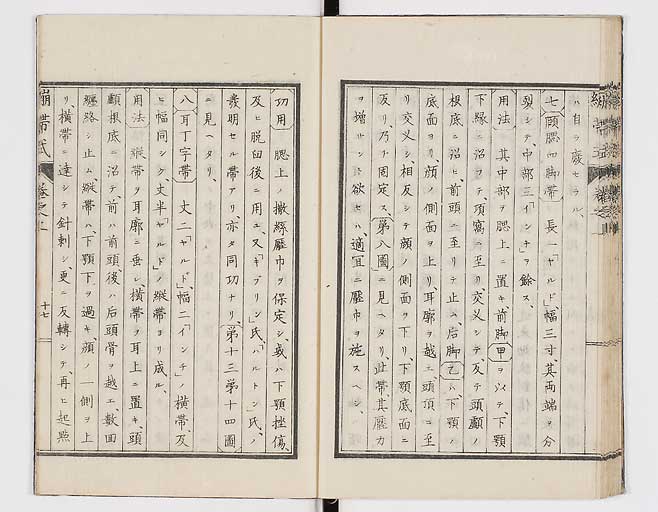 ハ自ラ廢セラル、
七 頤腮四脚帶 長一「ヤルド」幅三寸其両端ヲ分
裂シテ、中部三「インチ」ヲ餘ス、
用法 其中部ヲ腮上ニ置キ前脚甲ヲ以テ、下顎
下縁ニ沿フテ、項窩ニ至リ、交叉シテ、反テ頭顱ノ
根底ニ沿ヒ、前頭ニ至リテ止ム、后脚乙ハ、下顎ノ
底面ヨリ、顔ノ側面ヲ上リ、耳廓ヲ越エ、頭頂ニ至
リ交叉シ、相反シテ顔ノ側面ヲ下リ、下顎底面ニ
反リ乃チ固定ス、第八圖ニ見ヘタリ、此帶、其壓力
ヲ増サント欲セハ、適宜ニ壓巾ヲ施スヘシ、
功用 腮上ノ撒絲壓巾ヲ保定シ、或ハ下顎挫傷、
及ヒ脱臼後ニ用エ、又「ギブリン」氏、「バルトン」氏、ノ
發明セル帶アリ、亦タ同功ナリ、第十三第十四圖
ニ見ヘタリ、
八 耳丁字帶 丈二「ヤルド」、幅二「インチ」ノ横帶、及
ヒ幅同シク、丈半「ヤルド」ノ縱帶ヨリ成ル、
用法 縱帶ヲ耳廓ニ垂シ、横帶ヲ耳上ニ置キ、頭
顱根底ニ沿テ、前ハ前頭、後ハ后頭骨ヲ越エ、數回
纏絡シ止ム、縱帶ハ、下顎下ヲ過キ、顔ノ一側ヲ上
リ、横帶ニ達シテ針刺シ、更ニ反轉シテ、再ヒ起點
繃帶式 卷之上 十七